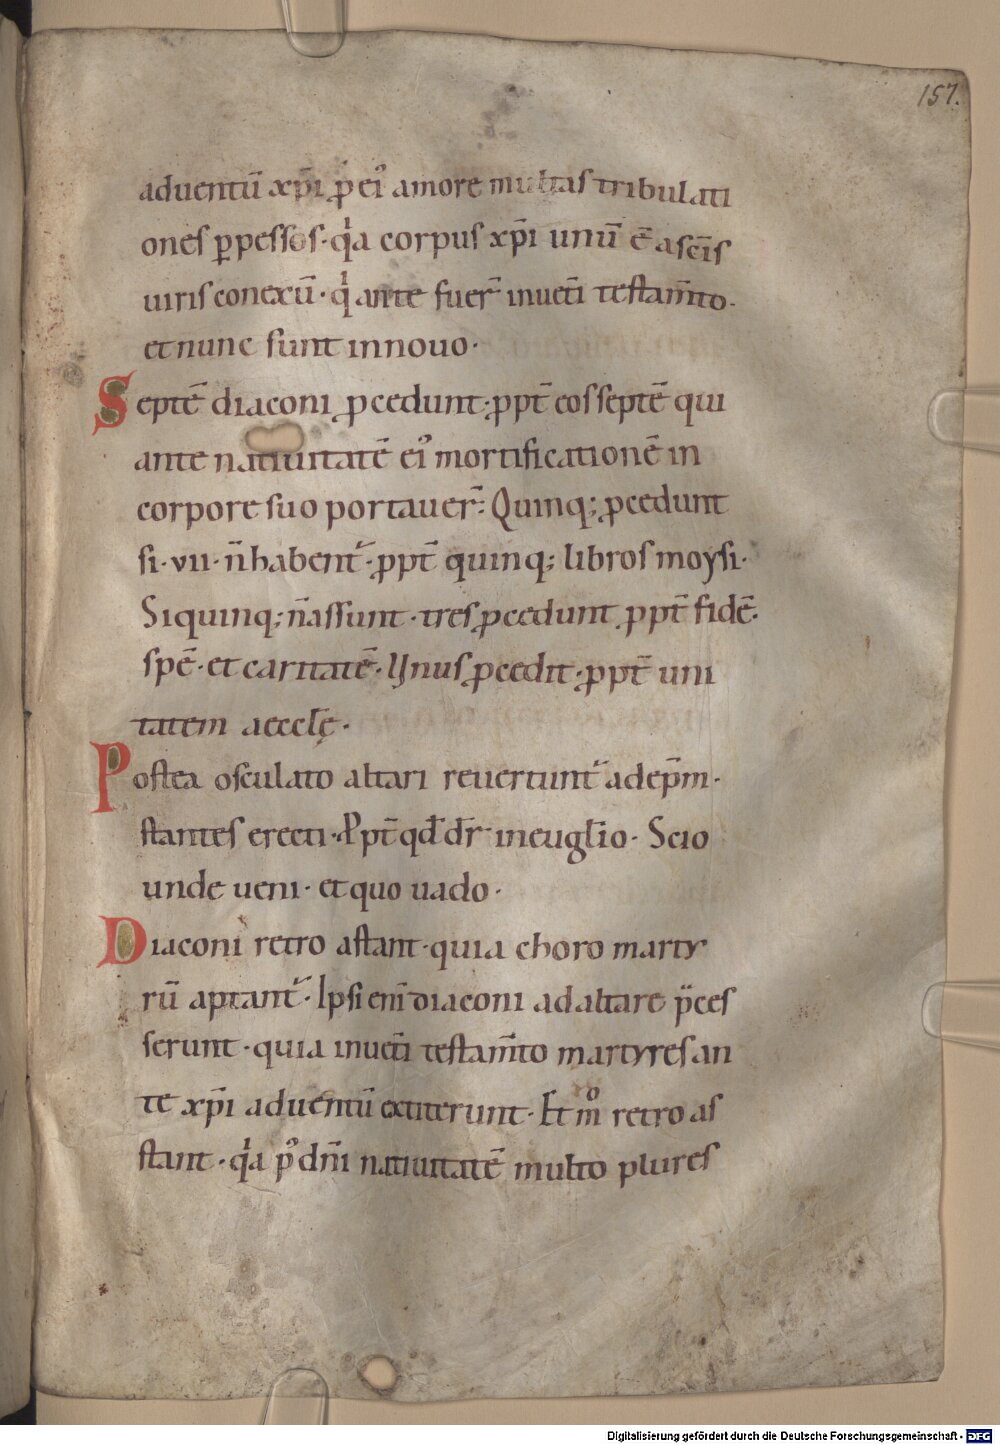 157.
aduentū xp̄i ꝓ ei᾿ amore multas tribulati
ones ꝑpessos · qͥa corpus xp̄i unū ē a sc̄is
uiris conexū · qͥ ante fuer̄ in uet̄i testam̄to ·
et nunc sunt in nouo ·
Septē diaconi ꝓcedunt · ꝓpt̄ eos septē qui
ante natiuitatē ei᾿ mortificationē in
corpore suo portauer̄ : Quinq; ꝓcedunt
si · vii · n̄ habent᷑ · ꝓpt̄ quinq; libros moysi ·
Si quinq; n̄ assunt · tres ꝓcedunt ꝓpt̄ fidē ·
spē · et caritatē · Unus ꝓcedit · ꝓpt̄ uni
tatem aeccl̄ę ·
Postea osculato altari reuertunt᷑ ad ep̄m ·
stantes erecti · Ꝓpt̄ qd̄ dr̄ in eugl̄io · Scio
unde ueni · et quo uado ·
Diaconi retro astant · quia choro marty
rū aptant᷑ · Ipsi eni̅ diaconi ad altare p̈ces
serunt · quia in uet̄i testam̄to martyres an
te xp̄i aduentū extiterunt · Et mͦ retro as
stant · qͥa p᾿ dn̄i natiuitatē multo plures
Digitalisierung gefördert durch die Deutsche Forschungsgemeinschaft - DFG